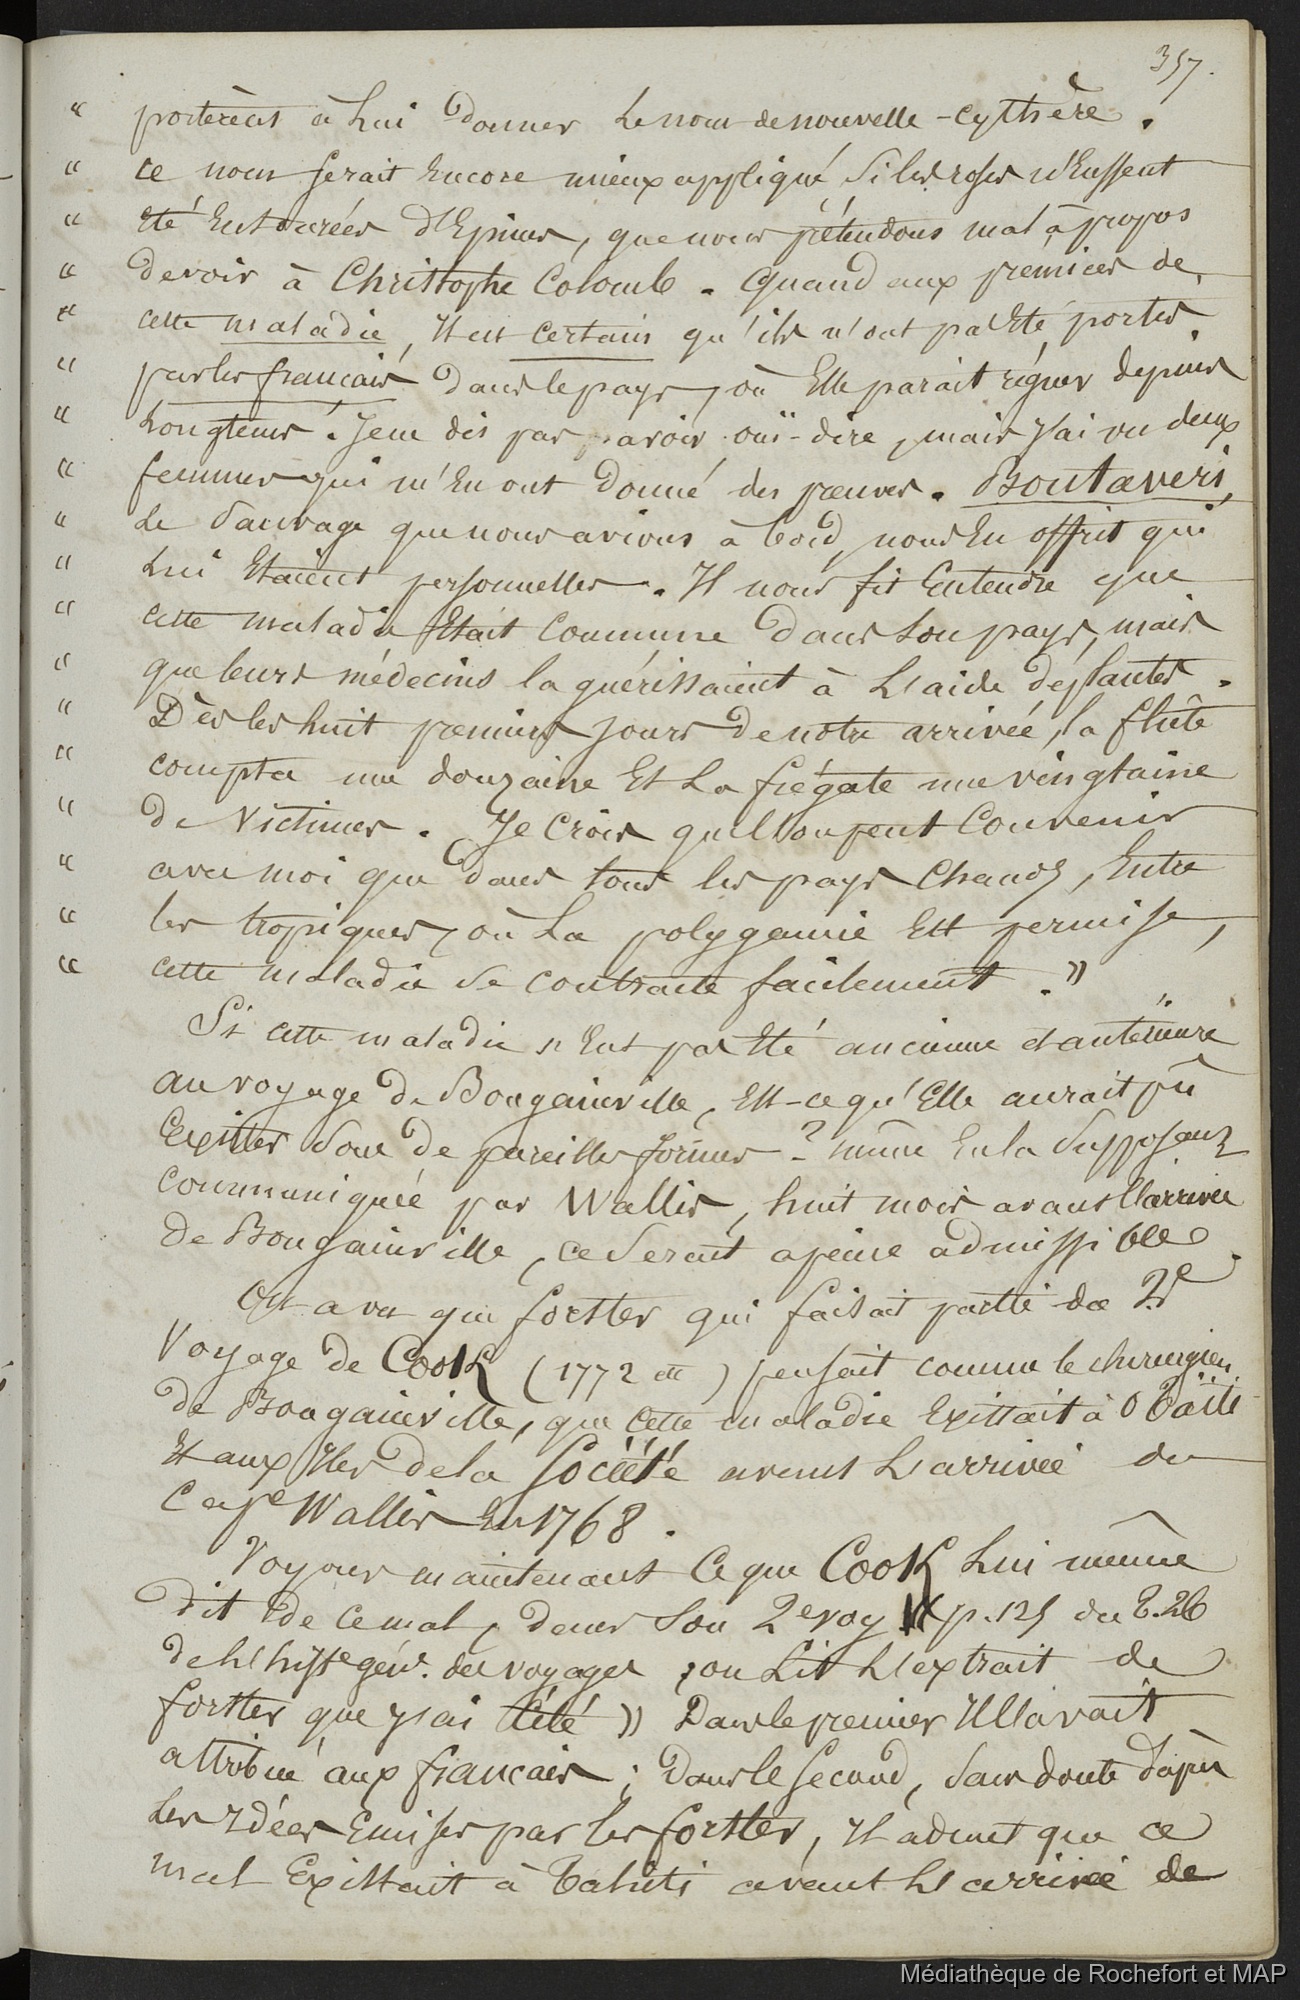 357.
" portèrent à lui donner le nom de nouvelle-cythère.
" ce nom serait Encore mieux appliqué si les roses n'Eussent
" Eté Entourées d'Epines, que nous prétendons mal à propos
" devoir à Christophe Colomb. Quand aux prémices de
" cette maladie, Il est certain qu'ils n'ont pas Eté portés
" par les francais dans le pays, où Elle parait régner depuis
" Longtems. Je ne dis pas savoir ouï-dire, mais J'ai vu deux
" femmes qui m'En ont donné des preuves. Boutaveris,
" Le Sauvage que nous avions à bord, nous En offrit qui
" Lui Etaient personnelles. Il nous fit Entendre que
" cette maladie Etait Commune dans son pays, mais
" que leurs médecins la guérissaient à L'aide de plantes.
" Dès les huit premiers jours de notre arrivée, la flûte
" compta une douzaine Et La frégate une vingtaine
" de Victimes. Je Crois que l'on peut Convenir
" avec moi que dans tous les pays Chauds, Entre
" les tropiques, où La polygamie Est permise,
" cette maladie se contracte facilement. "
Si cette maladie n'Eut pas Eté ancienne et antérieure
au voyage de Bougainville, Est-ce qu'Elle aurait pû
Exister sous de pareilles formes? même En la supposant
communiquée par Wallis, huit mois avant L'arrivée
de Bougainville, ce serait a peine admissible.
On a vu que forster qui faisait partie du 2e
Voyage de Cook (1772 etc) pensait comme le chirurgien
de Bougainville, que cette maladie Existait à O Taïti
Et aux Iles de la Société avant L'arrivée du
Cape Wallis En 1768.
Voyons maintenant Ce que Cook Lui même
dit de ce mal, dans son 2e voy. p. 125 du t. 26
de L'histe génle des voyages, où Lit L'extrait de
forster que J'ai cité » Dans le premier Il l'avait
attribué aux francais; dans le second, sans doute d'après
Les Idées Emises par les forster, Il admet que ce
mal Existait à Tahiti avant L'arrivée de
Médiathèque de Rochefort et MAP